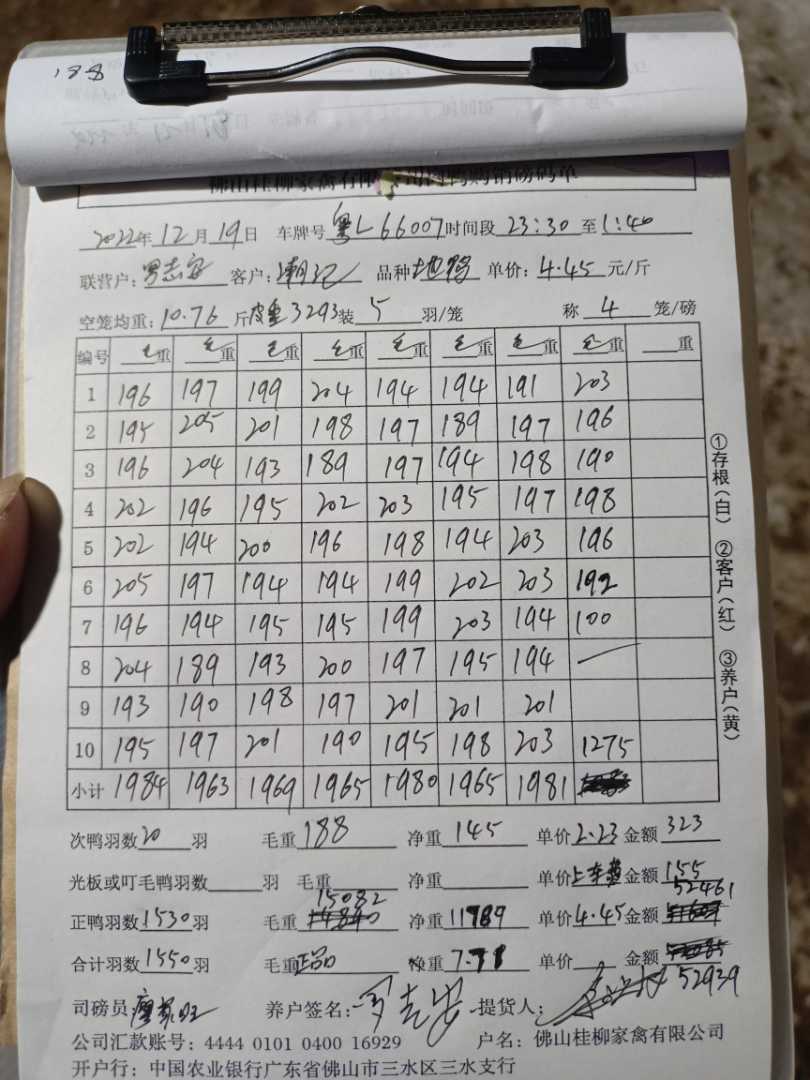 188
佛山桂柳家禽有限公司肉鸭购销磅码单
2022年12月19日 车牌号粤L66007时间段23:30至1:40
联营户: 客户:潮记 品种地鸭 单价:4.45元/斤
空笼均重:10.76斤皮重3293装5羽/笼 称4笼/磅
编号 毛重 毛重 毛重 毛重 毛重 毛重 毛重 毛重 重
1 196 197 199 204 194 194 191 203
2 195 205 201 198 197 189 197 196
3 196 204 193 189 197 194 198 190
4 202 196 195 202 203 195 197 198
5 202 194 200 196 198 194 203 196
6 205 197 194 194 199 202 203 192
7 196 194 195 195 199 203 194 100
8 204 189 193 200 197 195 194 —
9 193 190 198 197 201 201 201
10 195 197 201 190 195 198 203 1275
小计 1984 1963 1969 1965 1980 1965 1981
①存根(白) ②客户(红) ③养户(黄)
次鸭羽数20羽 毛重188 净重145 单价2.23金额323
光板或叮毛鸭羽数 羽 毛重 净重 单价上车费金额155
正鸭羽数1530羽 毛重15082 净重11789 单价4.45金额52461
合计羽数1550羽 毛重正品 净重7.71 单价 金额52939
司磅员 养户签名: 提货人:
公司汇款账号: 4444 0101 0400 16929 户名: 佛山桂柳家禽有限公司
开户行: 中国农业银行广东省佛山市三水区三水支行